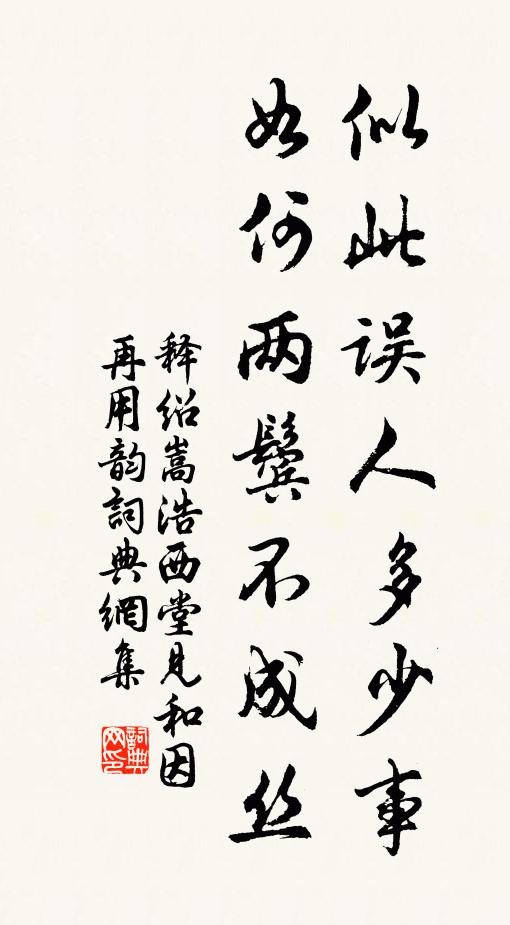 似此误人多少事
如何两鬓不成丝
释绍嵩浩西堂见和因
再用韵詞典網集
詞典
网印